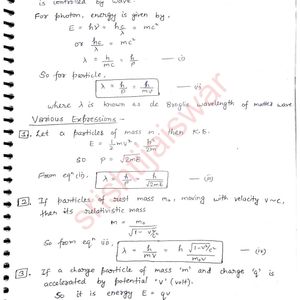 is controlled by wave.
For photon, energy is given by,
E = hν = hc/λ = mc²
or hc/λ = mc²
λ = h/mc — (i)
So for particle,
λ = h/p = h/mv — (ii)
where λ is known as de Broglie wavelength of matter wave
Various Expressions -
1. Let a particles of mass m, then K.E.
E = 1/2 mv² = p²/2m
So P = √2mE
From eqⁿ (ii), λ = h/p = h/√2mE — (iii)
2. If particles of rest mass m₀, moving with velocity v~c,
then its relativistic mass
m = m₀/√1-v²/c²
So from eqⁿ (ii), λ = h/mv = h√1-v²/c²/m₀v — (iv)
3. If a charge particle of mass 'm' and charge 'q' is
accelerated by potential 'V' (volt).
So it is energy E = qv
srishtijaiswar